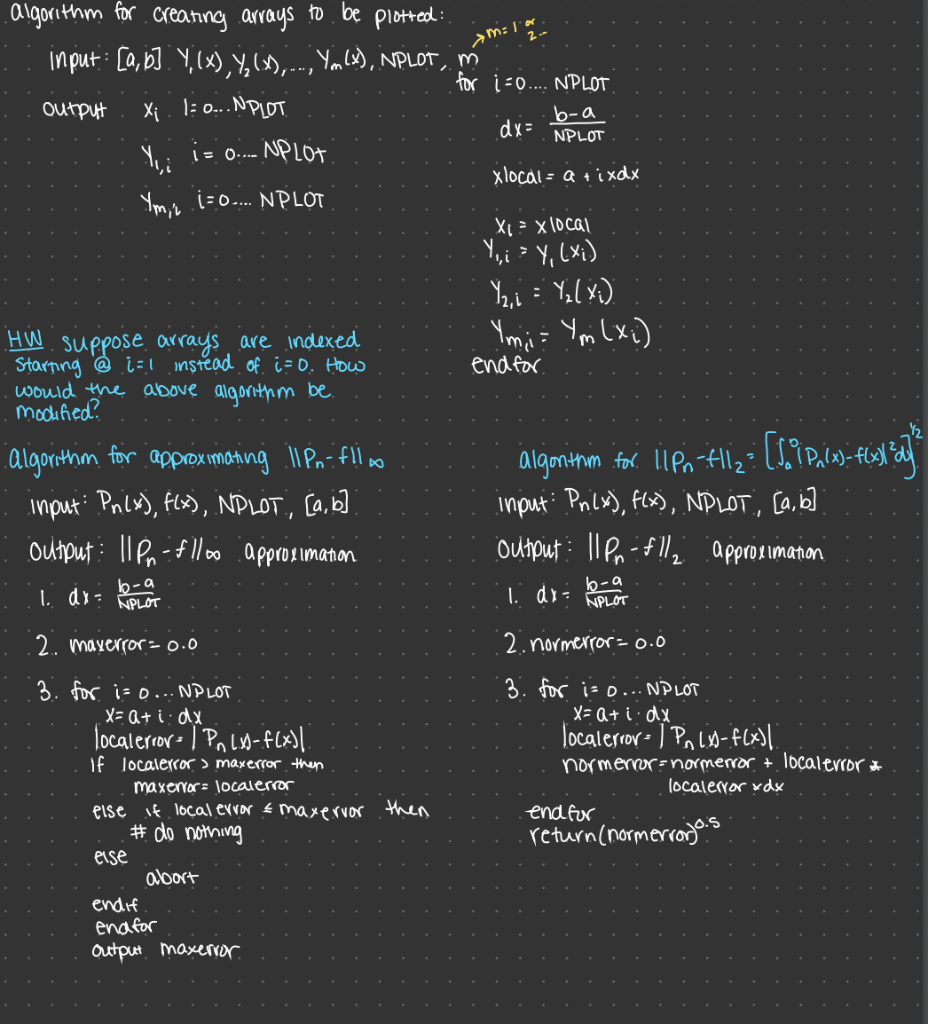 algorithm for creating arrays to be plotted:
→ m=1 or 2..
input: [a,b] Y₁(x), Y₂(x), ..., Yₘ(x), NPLOT, m
output xᵢ i=0... NPLOT
Y₁,ᵢ i = 0.... NPLOT
Yₘ,ᵢ i=0.... NPLOT
for i=0.... NPLOT
dx= b-a / NPLOT
xlocal = a + i x dx
xᵢ = xlocal
Y₁,ᵢ = Y₁(xᵢ)
Y₂,ᵢ = Y₂(xᵢ)
Yₘ,ᵢ = Yₘ(xᵢ)
endfor
HW suppose arrays are indexed
starting @ i=1 instead of i=0. How
would the above algorithm be
modified?
algorithm for approximating ||Pₙ-f||∞
input: Pₙ(x), f(x), NPLOT, [a,b]
output: ||Pₙ-f||∞ approximation
1. dx= b-a / NPLOT
2. maxerror= 0.0
3. for i= 0... NPLOT
x= a+ i · dx
localerror= |Pₙ(x)-f(x)|
if localerror > maxerror then
maxerror= localerror
else if localerror ≤ maxerror then
# do nothing
else
abort
endif
endfor
output maxerror
algorithm for ||Pₙ-f||₂= [∫ₐᵇ |Pₙ(x)-f(x)|²dx]^1/2
input: Pₙ(x), f(x), NPLOT, [a,b]
output: ||Pₙ-f||₂ approximation
1. dx= b-a / NPLOT
2. normerror= 0.0
3. for i= 0... NPLOT
x= a+ i · dx
localerror= |Pₙ(x)-f(x)|
normerror=normerror + localerror *
localerror x dx
endfor
return(normerror)^0.5